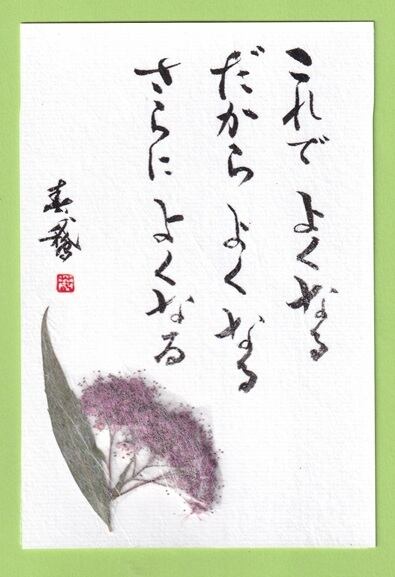 これで よくなる
だから よくなる
さらに よくなる